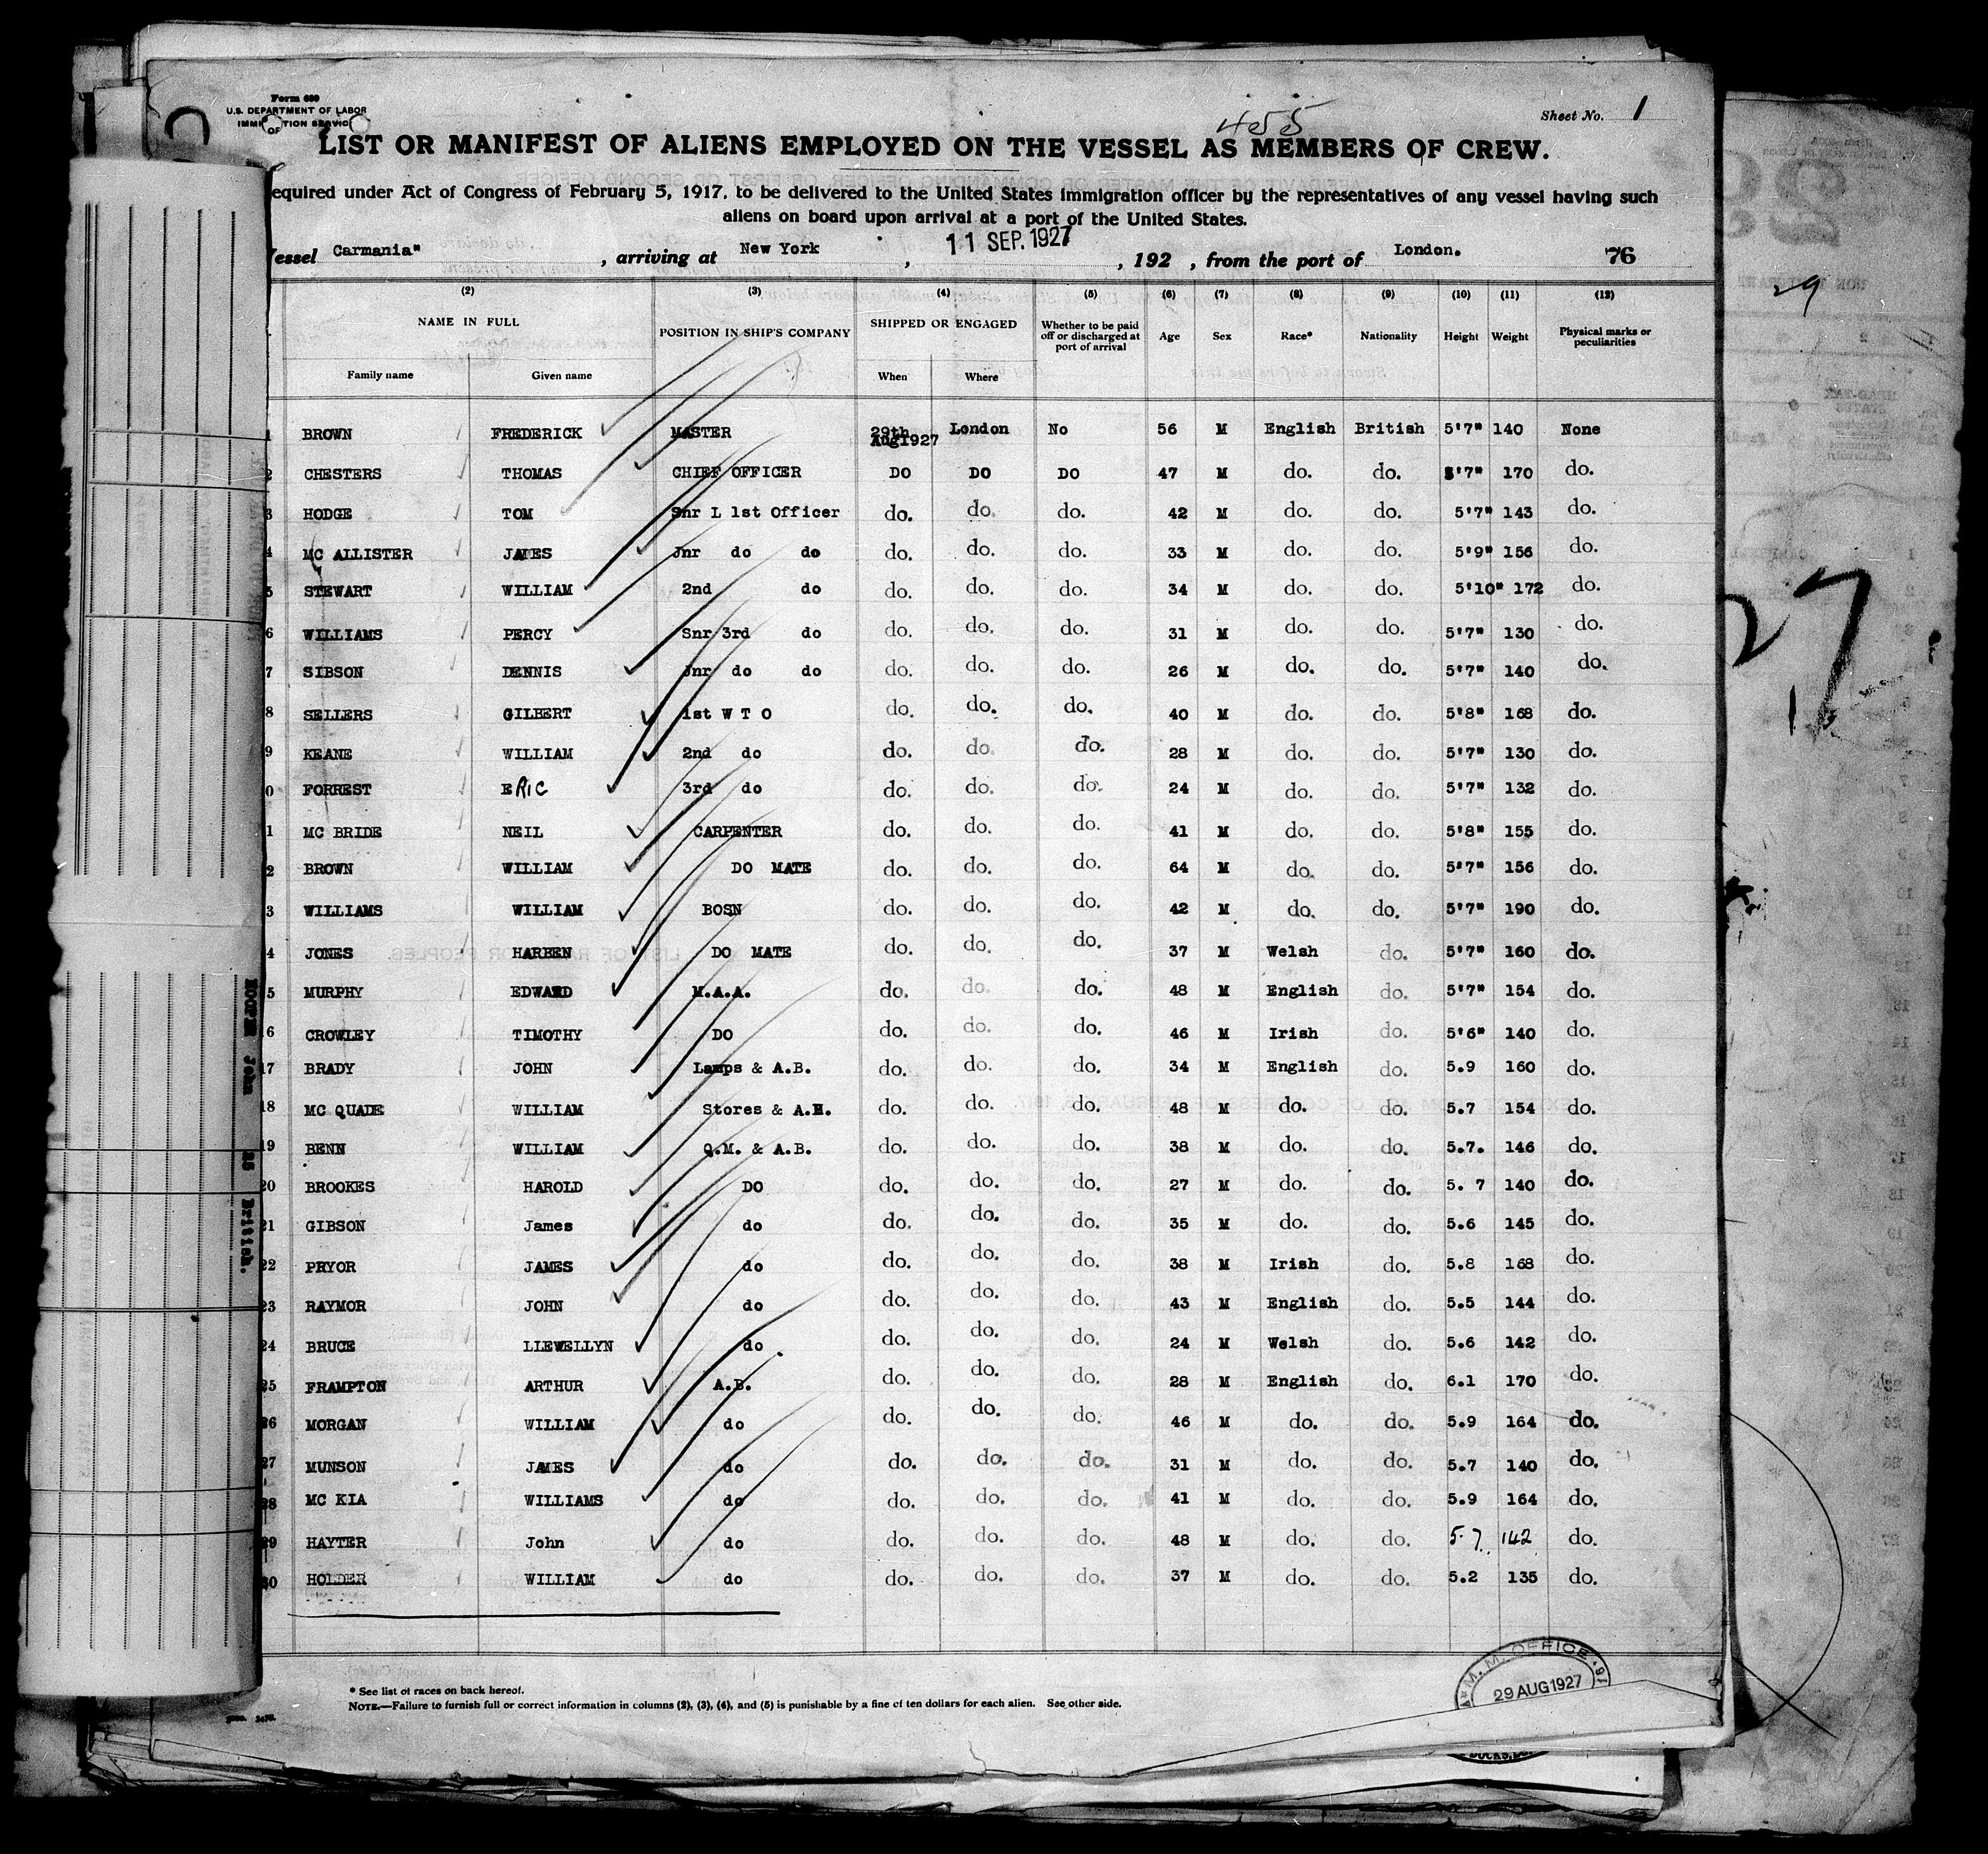 Form 680
U.S. DEPARTMENT OF LABOR
IMMIGRATION SERVICE
OF
455
Sheet No. 1
LIST OR MANIFEST OF ALIENS EMPLOYED ON THE VESSEL AS MEMBERS OF CREW.
equired under Act of Congress of February 5, 1917, to be delivered to the United States immigration officer by the representatives of any vessel having such
aliens on board upon arrival at a port of the United States.
essel Carmania" , arriving at New York , 11 SEP. 1927 , 192 , from the port of London. 76
(2) (3) (4) (5) (6) (7) (8) (9) (10) (11) (12)
NAME IN FULL POSITION IN SHIP'S COMPANY SHIPPED OR ENGAGED Whether to be paid off or discharged at port of arrival Age Sex Race* Nationality Height Weight Physical marks or peculiarities
Family name Given name When Where
1 BROWN FREDERICK MASTER 29th Aug1927 London No 56 M English British 5'7" 140 None
2 CHESTERS THOMAS CHIEF OFFICER DO DO DO 47 M do. do. 5'7" 170 do.
3 HODGE TOM Snr L 1st Officer do. do. do. 42 M do. do. 5'7" 143 do.
4 MC ALLISTER JAMES Jnr do do do. do. do. 33 M do. do. 5'9" 156 do.
5 STEWART WILLIAM 2nd do do. do. do. 34 M do. do. 5'10" 172 do.
6 WILLIAMS PERCY Snr 3rd do do. do. do. 31 M do. do. 5'7" 130 do.
7 SIBSON DENNIS Jnr do do do. do. do. 26 M do. do. 5'7" 140 do.
8 SELLERS GILBERT 1st W T O do. do. do. 40 M do. do. 5'8" 168 do.
9 KEANE WILLIAM 2nd do do. do. do. 28 M do. do. 5'7" 130 do.
0 FORREST ERIC 3rd do do. do. do. 24 M do. do. 5'7" 132 do.
1 MC BRIDE NEIL CARPENTER do. do. do. 41 M do. do. 5'8" 155 do.
2 BROWN WILLIAM DO MATE do. do. do. 64 M do. do. 5'7" 156 do.
3 WILLIAMS WILLIAM BOSN do. do. do. 42 M do. do. 5'7" 190 do.
4 JONES HARBEN DO MATE do. do. do. 37 M Welsh do. 5'7" 160 do.
5 MURPHY EDWARD M.A.A. do. do. do. 48 M English do. 5'7" 154 do.
6 CROWLEY TIMOTHY DO do. do. do. 46 M Irish do. 5'6" 140 do.
17 BRADY JOHN Lamps & A.B. do. do. do. 34 M English do. 5.9 160 do.
18 MC QUADE WILLIAM Stores & A.B. do. do. do. 48 M do. do. 5.7 154 do.
19 BENN WILLIAM Q.M. & A.B. do. do. do. 38 M do. do. 5.7. 146 do.
20 BROOKES HAROLD DO do. do. do. 27 M do. do. 5. 7 140 do.
21 GIBSON James do do. do. do. 35 M do. do. 5.6 145 do.
22 PRYOR JAMES do do. do. do. 38 M Irish do. 5.8 168 do.
23 RAYMOR JOHN do do. do. do. 43 M English do. 5.5 144 do.
24 BRUCE LLEWELLYN do do. do. do. 24 M Welsh do. 5.6 142 do.
25 FRAMPTON ARTHUR A.B. do. do. do. 28 M English do. 6.1 170 do.
26 MORGAN WILLIAM do do. do. do. 46 M do. do. 5.9 164 do.
27 MUNSON JAMES do do. do. do. 31 M do. do. 5.7 140 do.
28 MC KIA WILLIAMS do do. do. do. 41 M do. do. 5.9 164 do.
29 HAYTER John do do. do. do. 48 M do. do. 5.7 142 do.
30 HOLDER WILLIAM do do. do. do. 37 M do. do. 5.2 135 do.
* See list of races on back hereof.
NOTE.—Failure to furnish full or correct information in columns (2), (3), (4), and (5) is punishable by a fine of ten dollars for each alien. See other side.
M. M. OFFICE
29 AUG 1927
John 25 British.
29
27